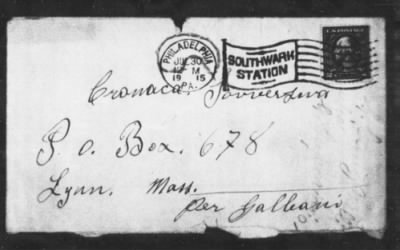 PHILADELPHIA
JUL 30
M
1915
PA.
SOUTHWARK
STATION
U.S. POSTAGE
Cronaca Sovversiva
P. O. Box. 678
Lynn. Mass.
Per Galleani